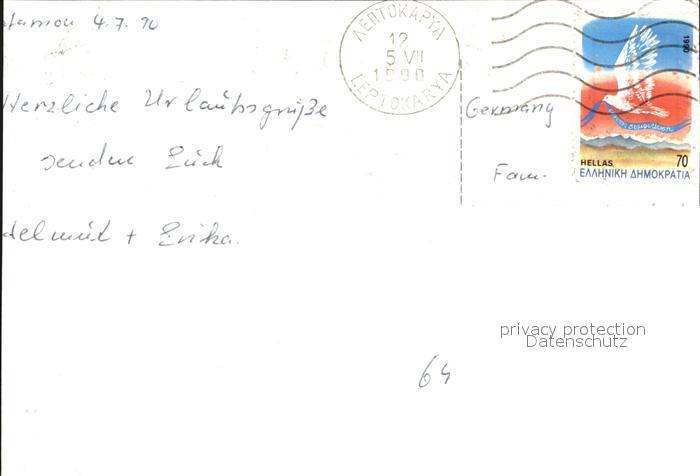 4.7.90
Herzliche Urlaubsgrüße
senden Euch
Helmut + Erika.
ΛΕΠΤΟΚΑΡΥΑ
12
5 VII
1990
LEPTOKARYA
Germany
Fam.
1990
HELLAS 70
ΕΛΛΗΝΙΚΗ ΔΗΜΟΚΡΑΤΙΑ
privacy protection
Datenschutz
64